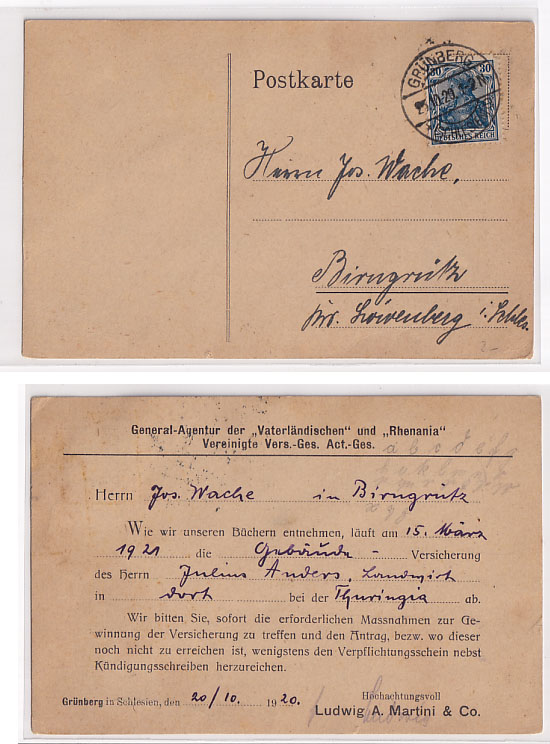 GRÜNBERG
30 30
DEUTSCHES REICH
Postkarte
Herrn Jos. Wache,
Birngrütz
Kr. Löwenberg i. Schles.
2-
General-Agentur der „Vaterländischen" und „Rhenania"
Vereinigte Vers.-Ges. Act.-Ges.
Herrn Jos. Wache in Birngrütz
Wie wir unseren Büchern entnehmen, läuft am 15. März
1921 die Gebäude- Versicherung
des Herrn Julius Anders, Landwirt
in dort bei der Thuringia ab.
Wir bitten Sie, sofort die erforderlichen Massnahmen zur Ge-
winnung der Versicherung zu treffen und den Antrag, bezw. wo dieser
noch nicht zu erreichen ist, wenigstens den Verpflichtungsschein nebst
Kündigungsschreiben herzureichen.
Hochachtungsvoll
Grünberg in Schlesien, den 20/10. 1920.
Ludwig A. Martini & Co.